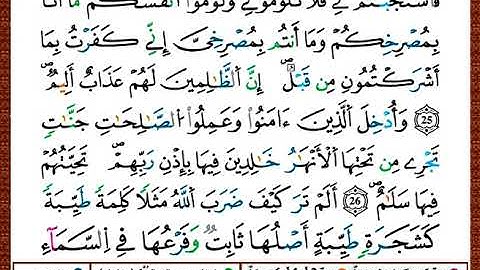 فَٱسْتَجَبْتُمْ لِي فَلَا تَلُومُونِي وَلُومُوٓا أَنفُسَكُم مَّآ أَنَا۠
بِمُصْرِخِكُمْ وَمَآ أَنتُم بِمُصْرِخِيَّ إِنِّي كَفَرْتُ بِمَآ
أَشْرَكْتُمُونِ مِن قَبْلُ ۗ إِنَّ ٱلظَّٰلِمِينَ لَهُمْ عَذَابٌ أَلِيمٌ
25 وَأُدْخِلَ ٱلَّذِينَ ءَامَنُوا وَعَمِلُوا ٱلصَّٰلِحَٰتِ جَنَّٰتٍ
تَجْرِي مِن تَحْتِهَا ٱلْأَنْهَٰرُ خَٰلِدِينَ فِيهَا بِإِذْنِ رَبِّهِمْ تَحِيَّتُهُمْ
فِيهَا سَلَٰمٌ 26 أَلَمْ تَرَ كَيْفَ ضَرَبَ ٱللَّهُ مَثَلًا كَلِمَةً طَيِّبَةً
كَشَجَرَةٍ طَيِّبَةٍ أَصْلُهَا ثَابِتٌ وَفَرْعُهَا فِي ٱلسَّمَآءِ